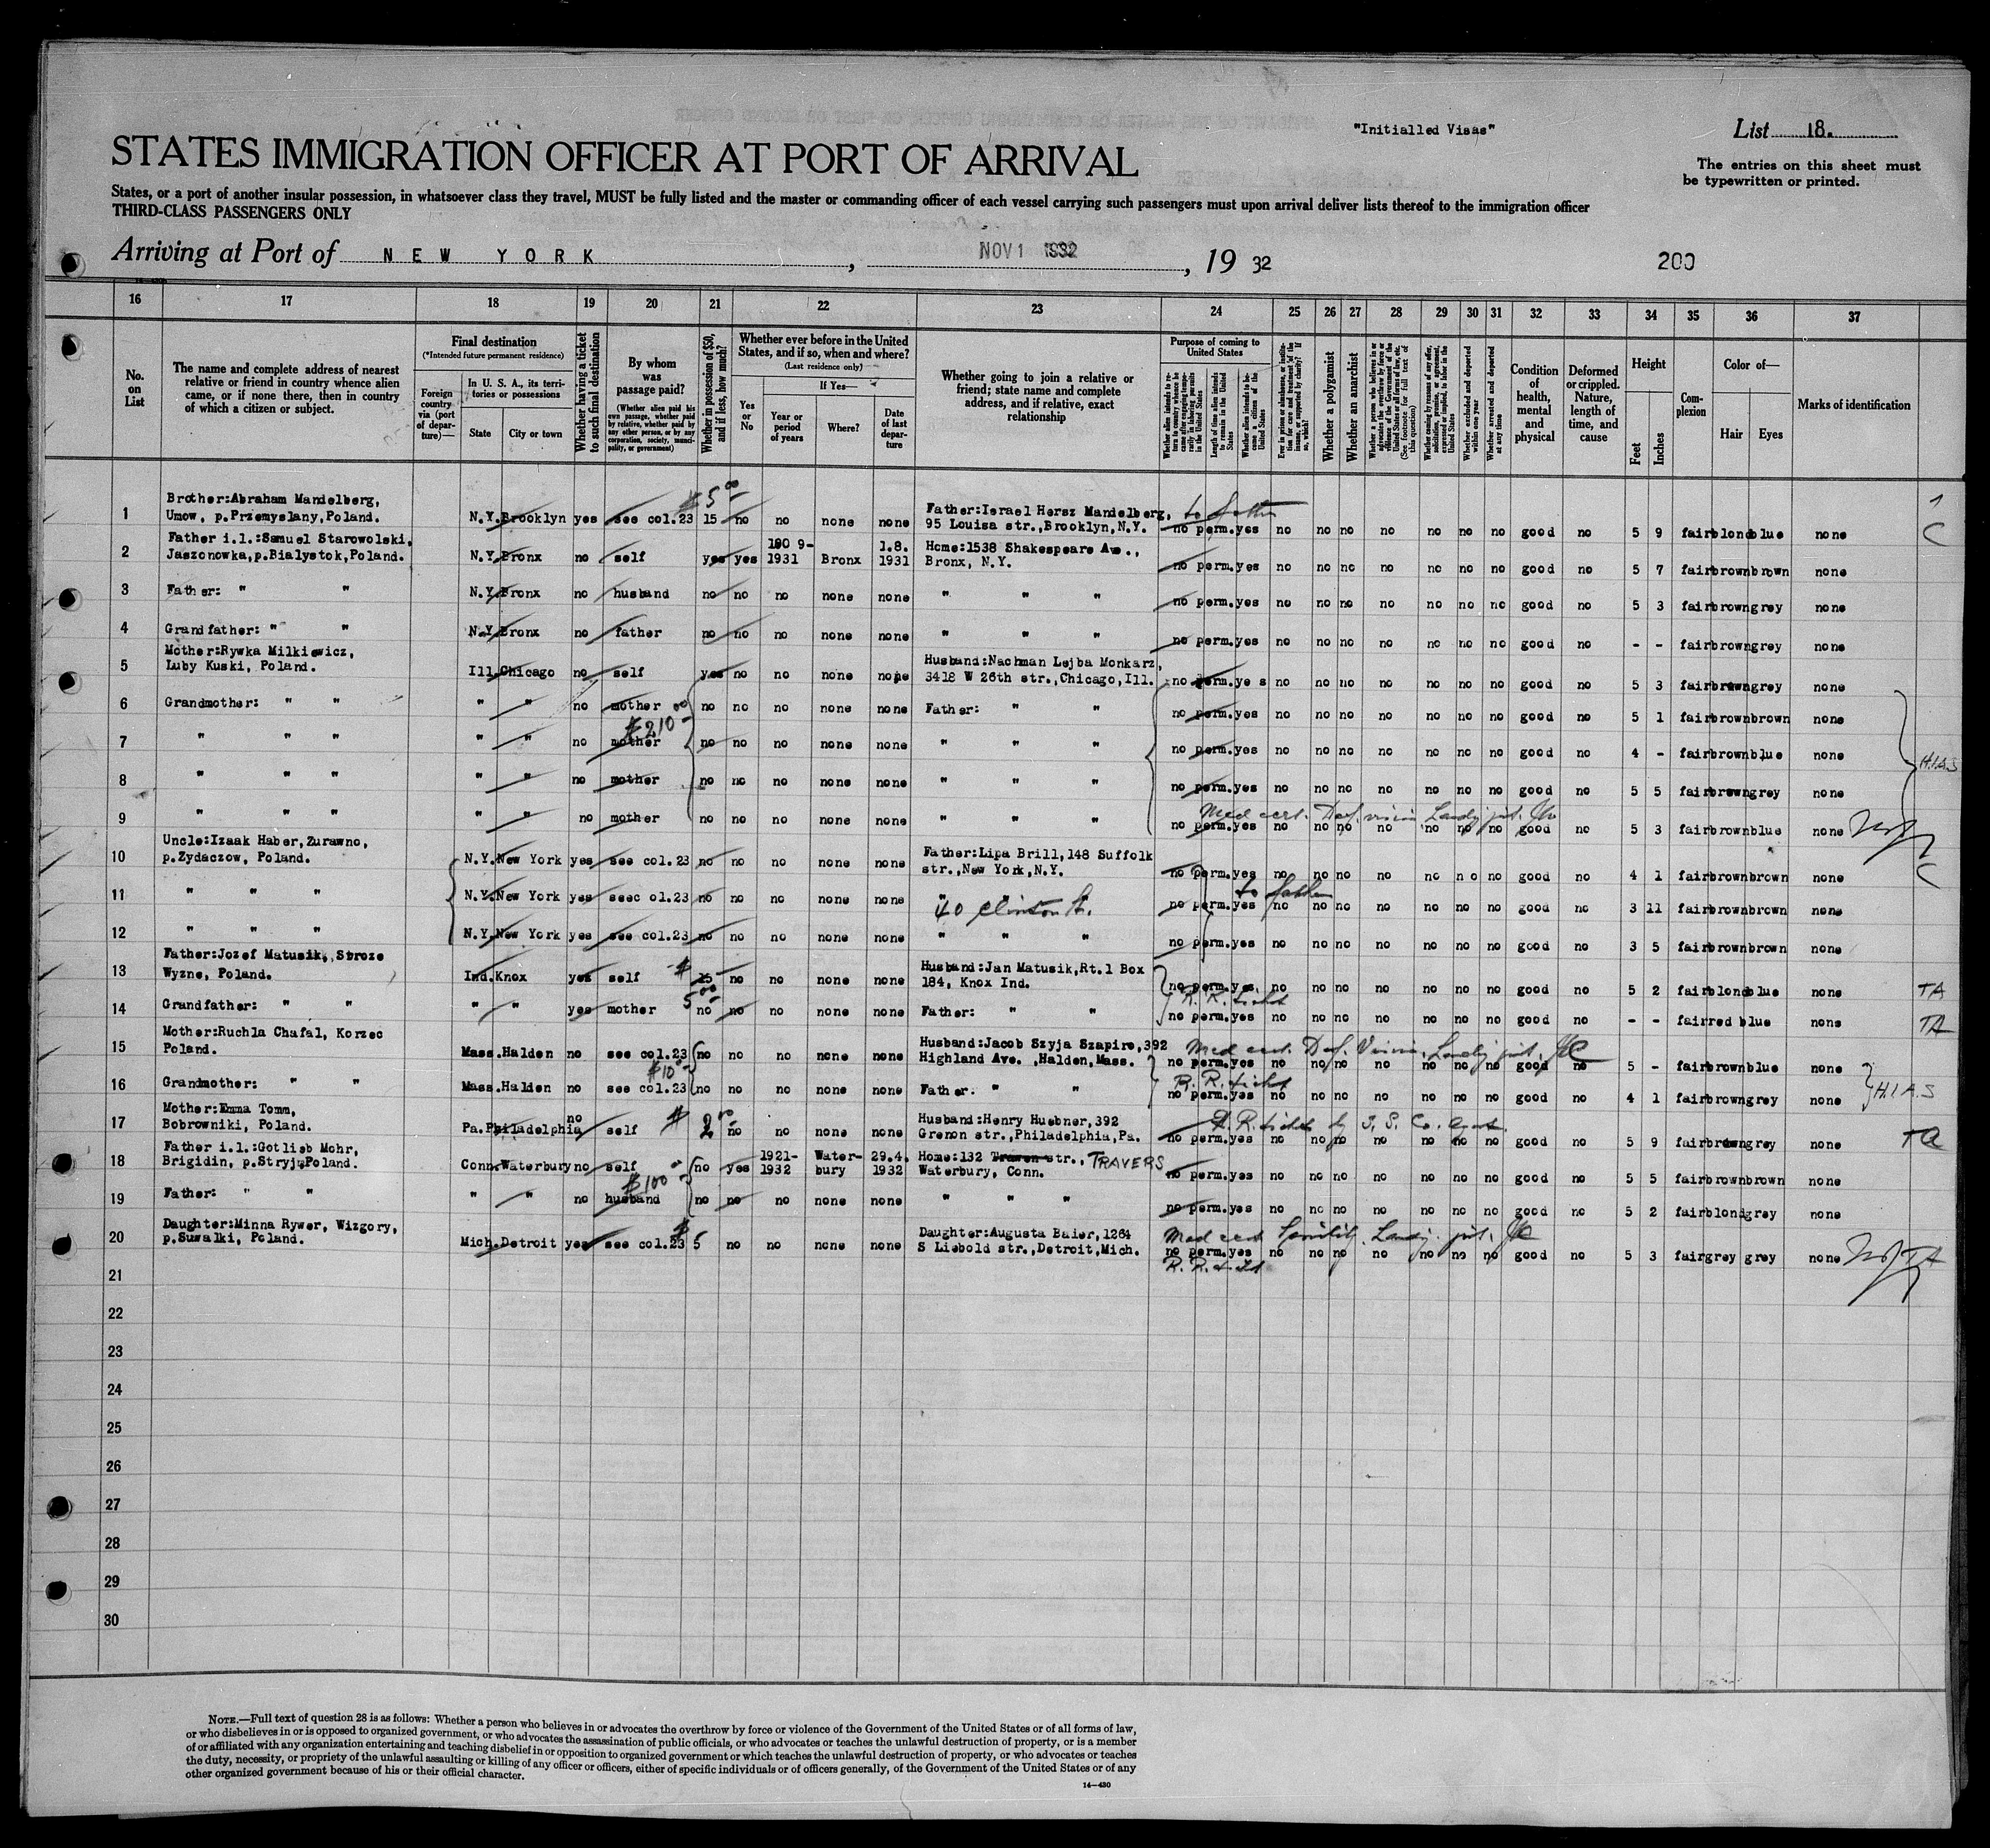 "Initialled Visas"
List 18.
STATES IMMIGRATION OFFICER AT PORT OF ARRIVAL
The entries on this sheet must
be typewritten or printed.
States, or a port of another insular possession, in whatsoever class they travel, MUST be fully listed and the master or commanding officer of each vessel carrying such passengers must upon arrival deliver lists thereof to the immigration officer
THIRD-CLASS PASSENGERS ONLY
Arriving at Port of NEW YORK, NOV 1 1932, 19 32
200
16 17 18 19 20 21 22 23 24 25 26 27 28 29 30 31 32 33 34 35 36 37
No. on List
The name and complete address of nearest relative or friend in country whence alien came, or if none there, then in country of which a citizen or subject.
Final destination
(*Intended future permanent residence)
Foreign country via (port of departure)—
In U. S. A., its territories or possessions
State
City or town
Whether having a ticket to such final destination
By whom was passage paid?
(Whether alien paid his own passage, whether paid by relative, whether paid by any other person, or by any corporation, society, municipality, or government)
Whether in possession of $50, and if less, how much?
Whether ever before in the United States, and if so, when and where?
(Last residence only)
Yes or No
If Yes—
Year or period of years
Where?
Date of last departure
Whether going to join a relative or friend; state name and complete address, and if relative, exact relationship
Purpose of coming to United States
Length of time alien intends to remain in the United States
Whether alien intends to become a citizen of the United States
Whether a polygamist
Whether an anarchist
Whether excluded and deported within one year
Whether arrested and deported at any time
Condition of health, mental and physical
Deformed or crippled. Nature, length of time, and cause
Height
Feet
Inches
Complexion
Color of—
Hair
Eyes
Marks of identification
1 Brother:Abraham Mandelberg, Umow, p.Przemyslany,Poland. N.Y. Brooklyn yes see col.23 $5 00 15 no no none none Father:Israel Hersz Mandelberg, 95 Louisa str.,Brooklyn,N.Y. to father no perm. yes no no no no no no no good no 5 9 fair blond blue none C
2 Father i.l.:Samuel Starowolski, Jaszonowka,p.Bialystok,Poland. N.Y. Bronx no self yes yes 190 9-1931 Bronx 1.8.1931 Home:1538 Shakespeare Ave., Bronx, N.Y. no perm. yes no no no no no no no good no 5 7 fair brown brown none
3 Father: " " N.Y. Bronx no husband no no no none none " " " no perm. yes no no no no no no no good no 5 3 fair brown grey none
4 Grandfather: " " N.Y. Bronx no father no no no none none " " " no perm. yes no no no no no no no good no - - fair brown grey none
5 Mother:Rywka Milkiewicz, Luby Kuski, Poland. Ill. Chicago no self yes no no none none Husband:Nachman Lejba Monkarz, 3418 W 26th str.,Chicago,Ill. no perm. ye s no no no no no no no good no 5 3 fair brown grey none
6 Grandmother: " " " " no mother no no no none none Father: " " no perm. yes no no no no no no no good no 5 1 fair brown brown none
$210 00
7 " " " " " no mother no no no none none " " " no perm. yes no no no no no no no good no 4 - fair brown blue none H.I.A.S
8 " " " " " no mother no no no none none " " " no perm. yes no no no no no no no good no 5 5 fair brown grey none
Med cert. Def. vision
9 " " " " " no mother no no no none none " " " no perm. yes no no no no no no no good no 5 3 fair brown blue none
10 Uncle:Izaak Haber,Zurawno, p.Zydaczow, Poland. N.Y. New York yes see col.23 no no no none none Father:Lipa Brill,148 Suffolk str.,New York,N.Y. no perm. yes no no no no no n o no good no 4 1 fair brown brown none C
11 " " " N.Y. New York yes seec ol.23 no no no none none " 40 Clinton St. to father no perm. yes no no no no no no no good no 3 11 fair brown brown none
12 " " " N.Y. New York yes see col.23 no no no none none " " " no perm. yes no no no no no no no good no 3 5 fair brown brown none
13 Father:Jozef Matusik, Stroze Wyzne, Poland. Ind. Knox yes self $ 5 00 no no none none Husband:Jan Matusik,Rt.1 Box 184, Knox Ind. no perm. yes no no no no no no no good no 5 2 fair blond blue none TA
R. R. ticket
14 Grandfather: " " " " yes mother no no no none none Father: " " no perm. yes no no no no no no no good no - - fair red blue none TA
15 Mother:Ruchla Chafal, Korzec Poland. Mass. Halden no see col.23 no no no none none Husband:Jacob Szyja Szapiro,392 Highland Ave. ,Halden,Mass. Med cert. Def. Vision no perm. yes no no no no no no no good no 5 - fair brown blue none
$10 R. R. ticket
16 Grandmother: " " Mass. Halden no see col.23 no no no none none Father: " " no perm. yes no no no no no no no good no 4 1 fair brown grey none H.I.A.S
17 Mother:Emma Tomm, Bobrowniki, Poland. Pa. Philadelphia no self $ 2 00 no no none none Husband:Henry Huebner,392 Grenon str.,Philadelphia,Pa. R. R. ticket by S. S. Co. no perm. yes no no no no no no no good no 5 9 fair brown grey none TA
18 Father i.l.:Gotlieb Mohr, Brigidin, p.Stryj,Poland. Conn. Waterbury no self no yes 1921-1932 Water-bury 29.4.1932 Home:132 str., TRAVERS Waterbury, Conn. no perm. yes no no no no no no no good no 5 5 fair brown brown none
$100
19 Father: " " " " no husband no no no none none " " " no perm. yes no no no no no no no good no 5 2 fair blond grey none
20 Daughter:Minna Rywer, Wizgory, p.Suwalki, Poland. Mich. Detroit yes see col.23 $ 5 no no none none Daughter:Augusta Baier,1264 S Liebold str.,Detroit,Mich. Med cert Senility no perm. yes no no no no no no no good no 5 3 fair grey grey none TA
21
22
23
24
25
26
27
28
29
30
NOTE.—Full text of question 28 is as follows: Whether a person who believes in or advocates the overthrow by force or violence of the Government of the United States or of all forms of law,
or who disbelieves in or is opposed to organized government, or who advocates the assassination of public officials, or who advocates or teaches the unlawful destruction of property, or is a member
of or affiliated with any organization entertaining and teaching disbelief in or opposition to organized government or which teaches the unlawful destruction of property, or who advocates or teaches
the duty, necessity, or propriety of the unlawful assaulting or killing of any officer or officers, either of specific individuals or of officers generally, of the Government of the United States or of any
other organized government because of his or their official character.
14—430